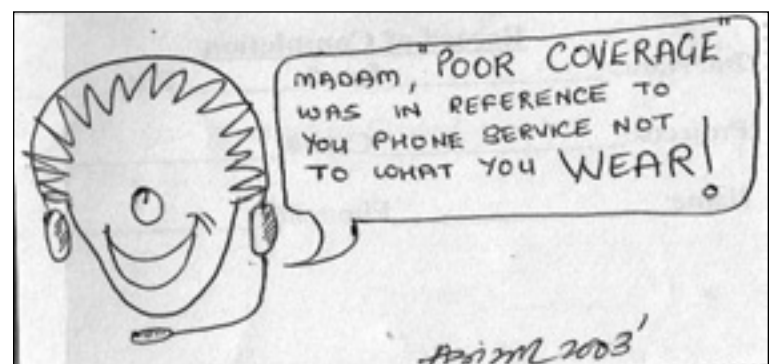 MADAM, "POOR COVERAGE"
WAS IN REFERENCE TO
YOU PHONE SERVICE NOT
TO WHAT YOU WEAR!
2003'